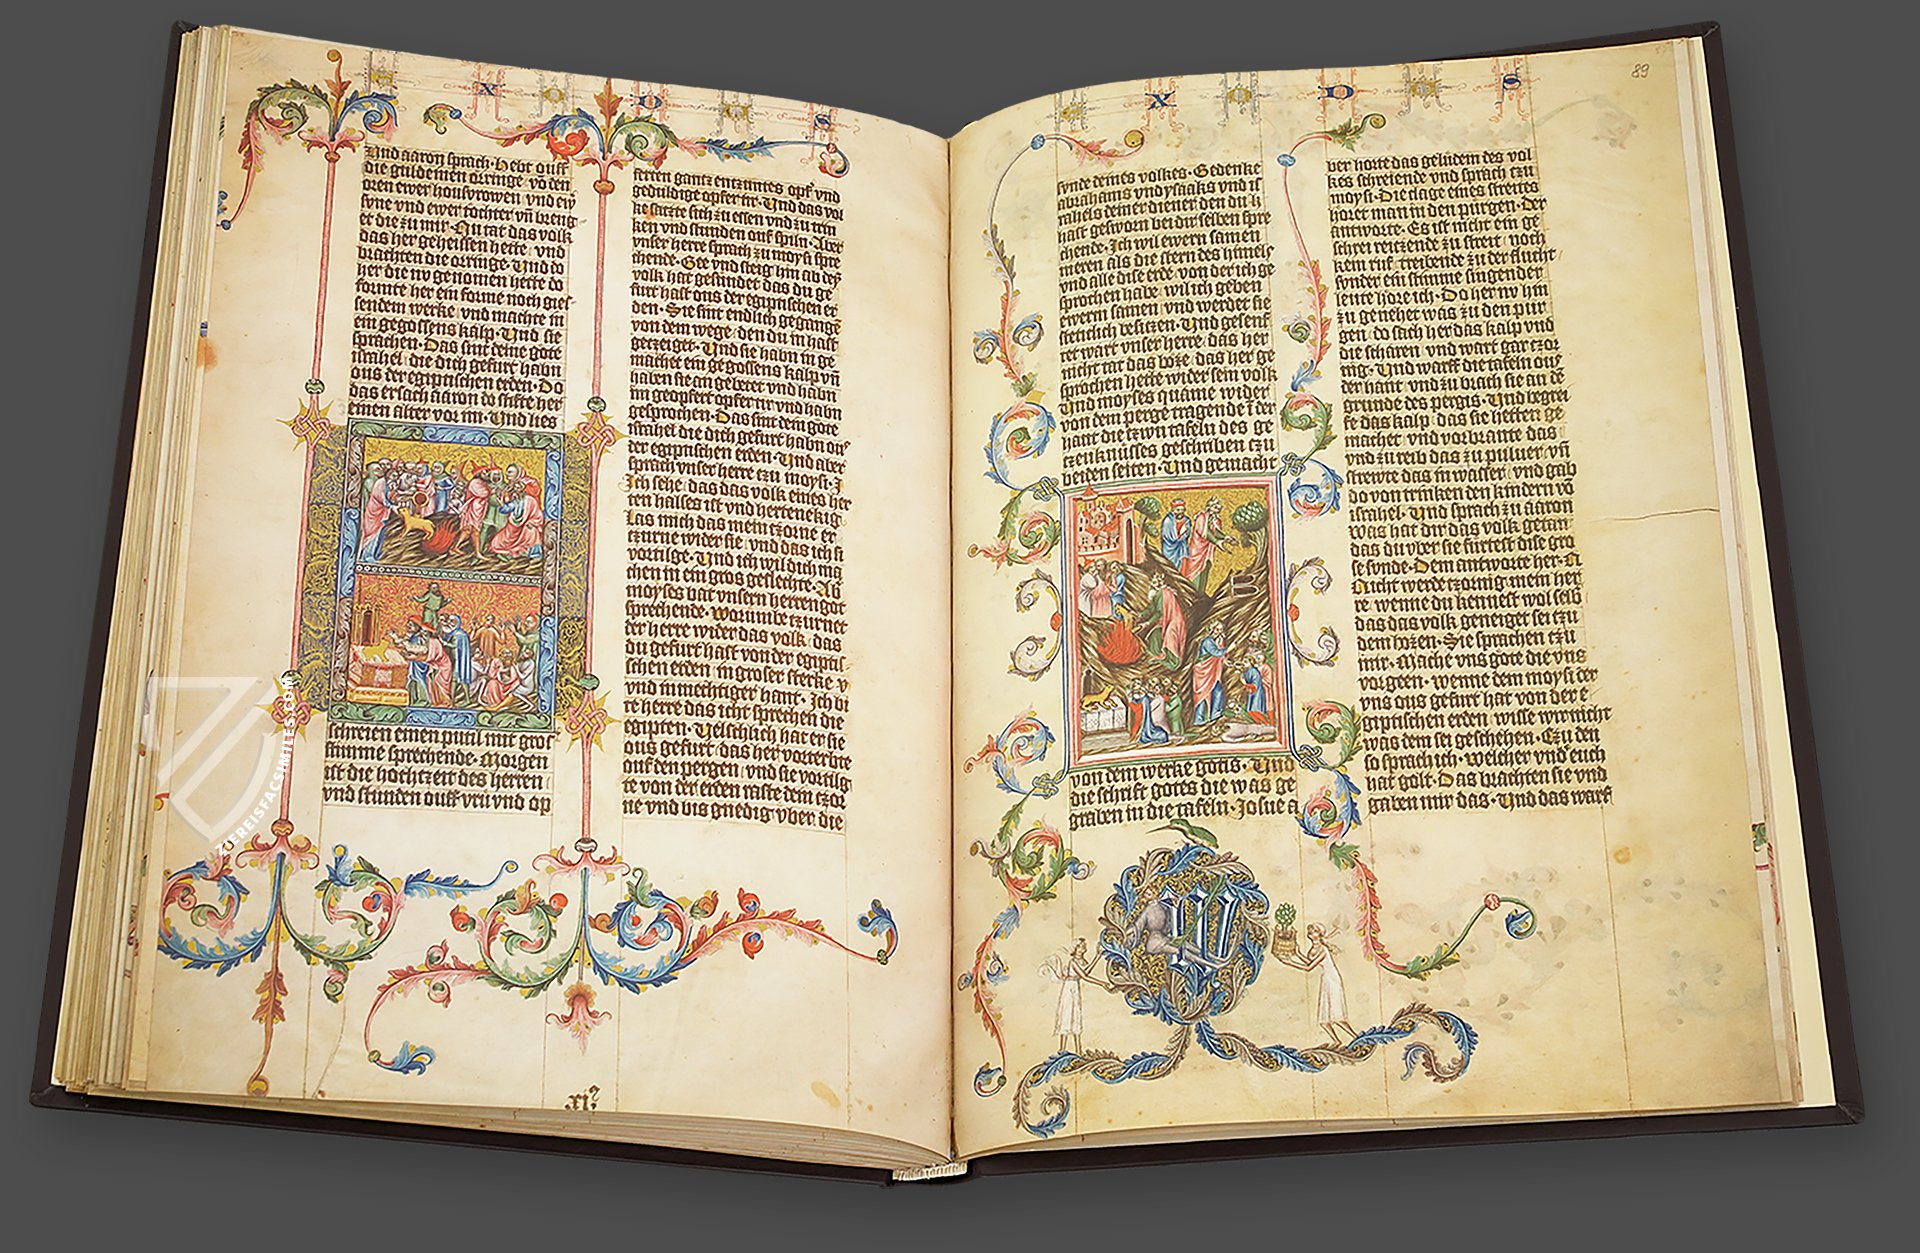 E X O D U S
Und aaron sprach · Hebt ouff
die guldeinen orringe · vō den
oren ewer housvrowen und ewr
sune vnd ewer tochter vn̄ breng
et die zu mir · Nu tat das volk
das her geheissen hette · vnd
brachten die orringe · Und do
her die nv genomen hette do
formte her ein forme noch gies-
sendem werke vnd machte in
ein gegossens kalp · Und sie
sprachen · Das sint deine gote
israhel die dich gefurt habn
ous der egiptischen erden · Do
das ersach aaron do stifte her
einen alter vor im · Und lies
schreien einen putil mit gros
stimme sprechende · Morgen
ist die hochtzeit des herren
vnd stunden ouff vru vnd op
ferten gantz entzuntes opf vnd
geduldige opfer fir · Und das vol
ke satzte sich zu essen vnd zu trin
ken vnd stunden ouf spiln · Aber
vnser herre sprach zu moysi spre
chende · Gee vnd steig hin ab dey
volk hat gesundet das du ge
furt hast ous der egiptischen er
den · Sie sint endlich gegangē
von dem wege den du in hast
getzeiget · Und sie habn in ge
machet ein gegossens kalp vn̄
haben sie an gebetet vnd habn
im geopfert opfer tir vnd habn
gesprochen · Das sint dem gote
israhel die dich gefurt habn ouz
der egiptischen erden · Und aber
sprach vnser herre tzu moysi · I
Ich sehe das das volk eines her
ten halses ist vnd hertenekig
Las mich das mein tzorne er
tzurne wider sie vnd das ich si
vortilge · Und ich wil dich ma
chen in ein gros geslechte · Ab
moyses bat vnsern herren got
sprechende · Worumbe tzurnet
der herre wider das volk das
du gefurt hast von der egiptis
schen erden in groser sterke v
vnd in mechtiger hant · Ich bi
te herre das icht sprechen die
egipten · Velschlich hat er sie
ous gefurt das her vorterbte
ouf den pergen vnd sie vortilg
te von der erden raste dem tzor
ne vnd bis gnedig vber die
xi⁹
E X O D U S
89
sunde deines volkes · Gedenke
abrahams vnd ysaaks vnd is
rahels deiner diener den du h
hast gesworn bei dir selben spre
chende · Ich wil ewern samen
meren als die stern des himels
vnd alle dise erde von der ich ge
sprochen habe wil ich geben
ewerm samen vnd werdet sie
steticlich besitzen · Und gesenf
tet wart vnser herre das her
nicht tat das boze das her ge
sprochen hette wider sein volk
Und moyses quame wider
von dem perge tragende ī der
hant die tzwu tafeln des ge
tzeuknüsses geschriben tzu
beiden seiten · Und gemacht
von dem werke gotis · Und
die schrift gotes die was ge
graben in die tafeln · Josue a
ber horte das gelüdem des vol
kes schreiende vnd sprach tzu
moysi · Die clage eines streites
horet man in den purgen · Der
antworte · Es ist nicht ein ge
schrei reitzende zu streit noch
kein ruf treibende zu der flucht
sunder ein stimme singender
leute hore ich · Do her nv hin
zu geneher was zu den pur
gen · do sach her das kalp vnd
die scharen vnd wart gar tzor
nig · Und warff die tafeln ous
der hant vnd zu brach sie an dē
grunde des pergis · Und begrei
fe das kalp das sie hetten ge
machet vnd vorbrante das
vnd zu reib das zu puluer vn̄
strewte das in wasser vnd gab
do von trinken den kindern vō
israhel · Und sprach zu aaron
was hat dir das volk getan
das du vber sie furtest dise gro
se sunde · Dem antworte her · N
Nicht werde tzornig mein her
re wenne du kennest wol selb
das volk das geneiget sei tzu
dem bozen · Sie sprachen tzu
mir · Mache vns gote die vns
vorgeen · wenne dem moysi der
vns ous gefurt hat von der e
egiptischen erden wisse wir nicht
was dem sei geschehen · Tzu den
so sprach ich · welcher vnd euch
hat golt · Das brachten sie vnd
gaben mir das · Und das warf
ZUFEREISFACSIMILES.COM